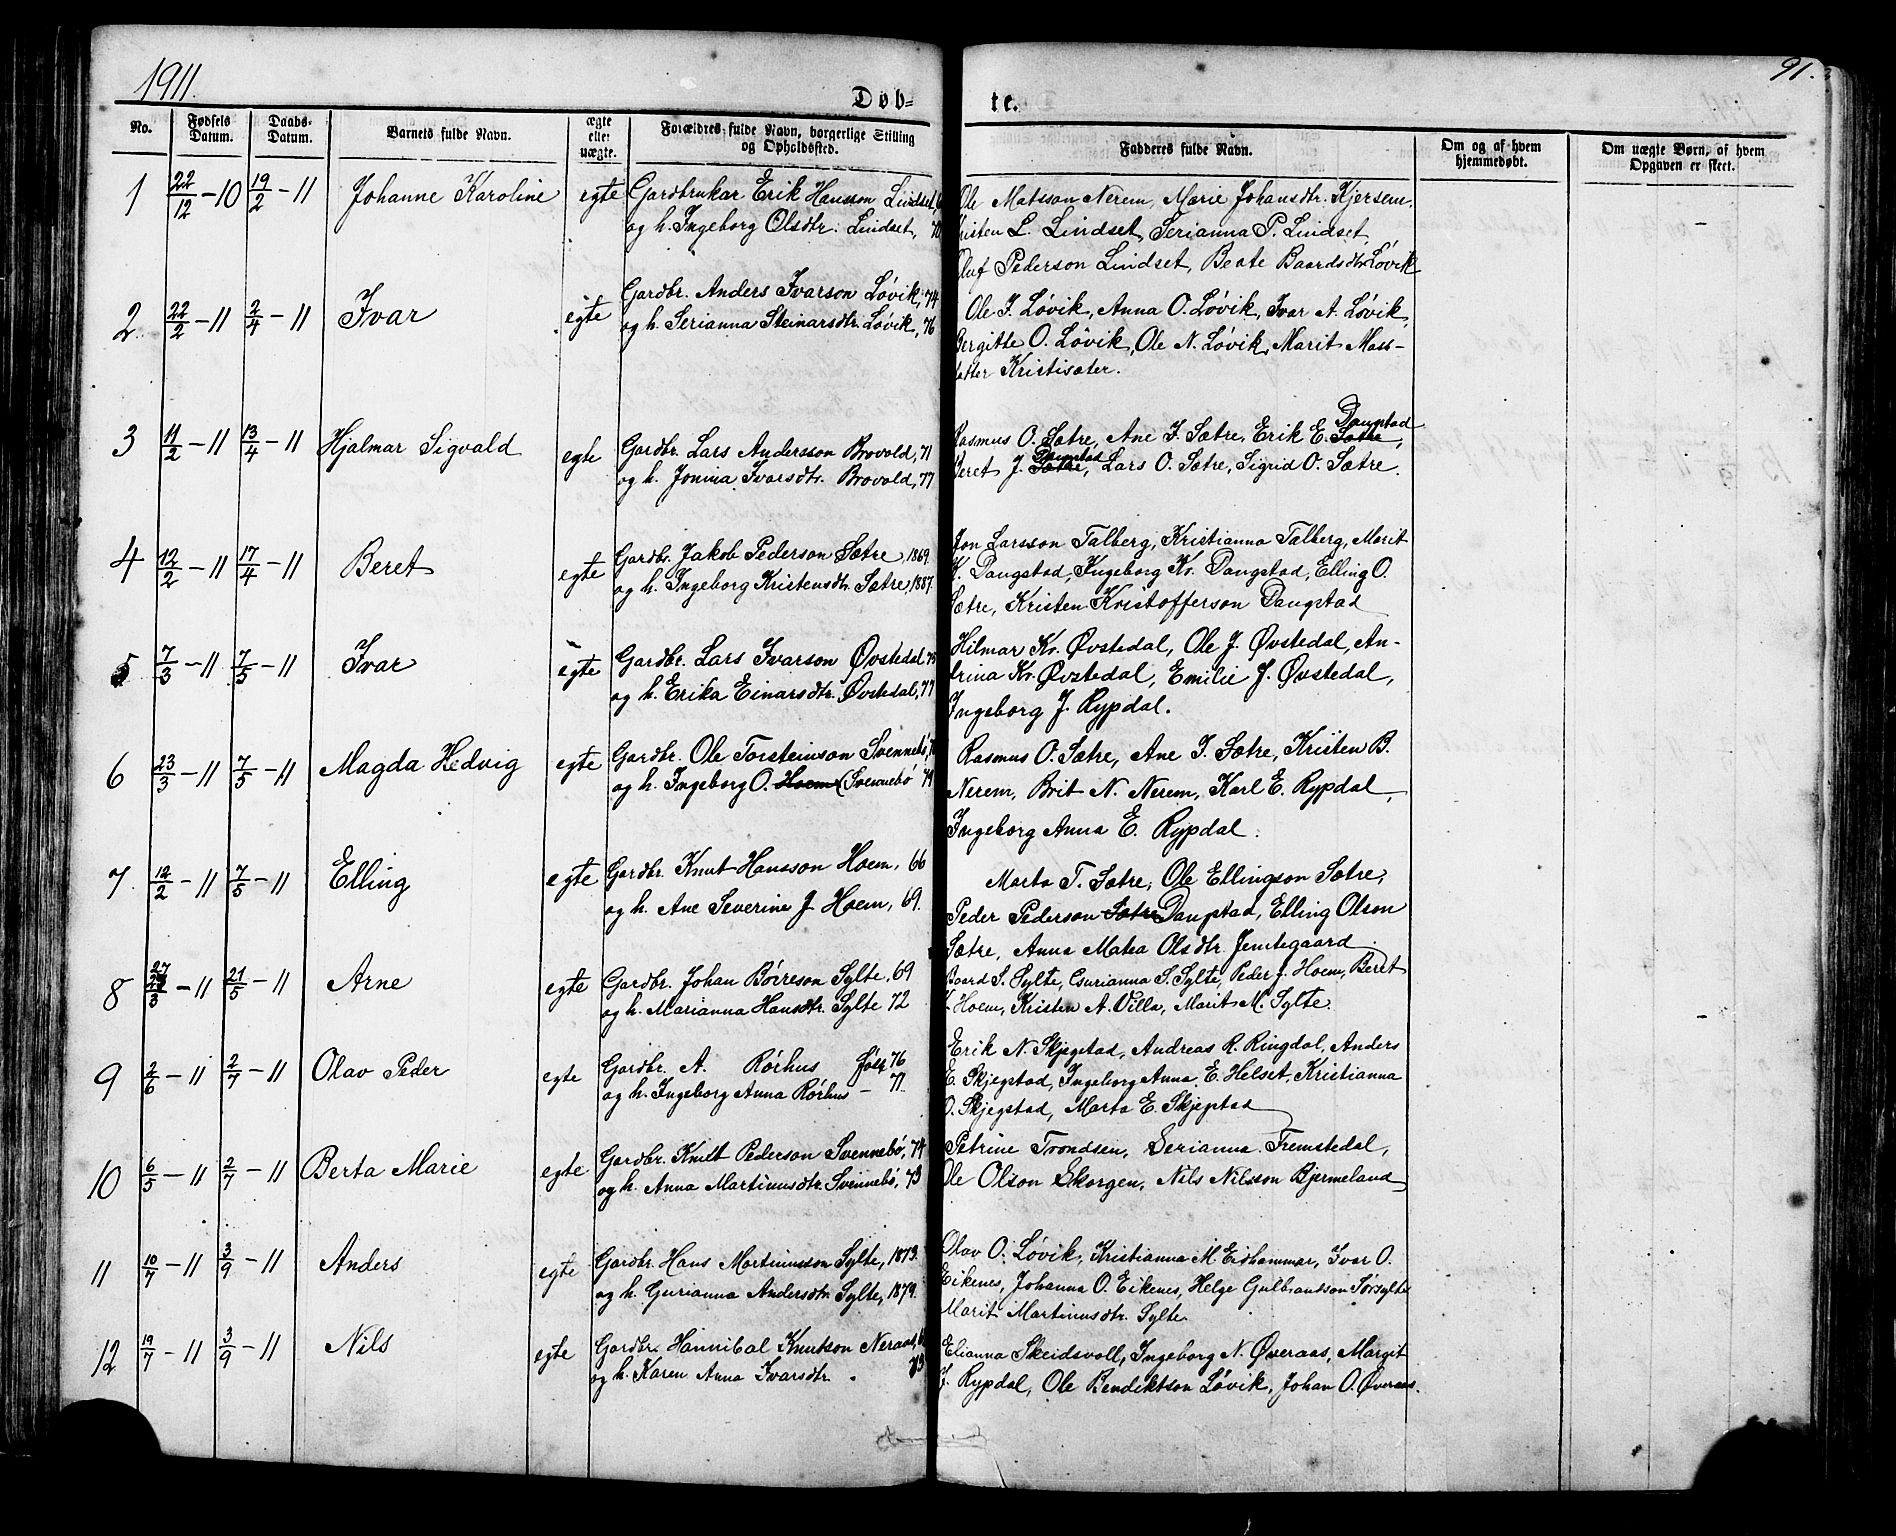 1911.
91.
Døb-
te.
No.
Fødsels Datum.
Daabs- Datum.
Barnets fulde Navn.
ægte eller uægte.
Forældres fulde Navn, borgerlige Stilling og Opholdssted.
Fadderes fulde Navn.
Om og af hvem hjemmedøbt.
Om uægte Børn, af hvem Opgaven er skeet.
1 22/12 - 10 19/2 - 11 Johanne Karoline egte
Gardbrukar Erik Hansson Lindset,
og h. Ingeborg Olsdtr. Lindset, 70
Ole Matsson Nerem, Marie Johansdtr. Kjersem.
L. Lindset, Serianna P. Lindset,
Oluf Pederson Lindset, Beate Baardsdtr. Løvik
2 22/2 - 11 2/4 - 11 Ivar egte
Gardbr. Anders Ivarson Løvik, 74
og h. Serianna Steinarsdtr. Løvik, 76
Ole I. Løvik, Anna O. Løvik, Ivar A. Løvik,
Bergitte O. Løvik, Ole N. Løvik, Marit Mass-
datter Kristisæter.
3 11/2 - 11 13/4 - 11 Hjalmar Sigvald egte
Gardbr. Lars Andersson Brovold, 71
og h. Jonina Ivarsdtr. Brovold, 77
Daugstad
Rasmus O. Sætre, Ane I. Sætre, Erik E. Sætre,
Daugstad
Beret J. Sætre, Lars O. Sætre, Sigrid O. Sætre.
4 12/2 - 11 17/4 - 11 Beret egte
Gardbr. Jakob Pederson Sætre, 1869.
og h. Ingeborg Kristensdtr. Sætre, 1887.
Jon Larsson Talberg, Kristianna Talberg, Marit
K. Daugstad, Ingeborg Kr. Daugstad, Elling O.
Sætre, Kristen Kristofferson Daugstad
5 7/3 - 11 7/5 - 11 Ivar egte
Gardbr. Lars Ivarson Øvstedal 75
og h. Erika Einarsdtr. Øvstedal, 77
Hilmar Kr. Øvstedal, Ole J. Øvstedal, An-
drina Kr. Øvstedal, Emilie J. Øvstedal,
Ingeborg J. Rypdal.
6 23/3 - 11 7/5 - 11 Magda Hedvig egte
Gardbr. Ole Torsteinson Svennebø,
og h. Ingeborg O. Hoem Svennebø 79
Rasmus O. Sætre, Ane I. Sætre, Kristen B.
Nerem, Brit N. Nerem, Karl E. Rypdal,
Ingeborg Anna E. Rypdal.
7 12/2 - 11 7/5 - 11 Elling egte
Gardbr. Knut Hansson Hoem, 66
og h. Ane Severine J Hoem, 69.
Marta T. Sætre, Ole Ellingson Sætre,
Peder Pederson Sætre Daugstad, Elling Olson
Sætre, Anna Matea Olsdtr. Jemtegaard
8 27/3 - 11 21/5 - 11 Arne egte
Gardbr. Johan Børreson Sylte, 69
og h. Marianna Hansdtr. Sylte 72
Baard S. Sylte, Gurianna S. Sylte, Peder J. Hoem, Beret
K Hoem, Kristen A. Villa, Marit M. Sylte.
9 2/6 - 11 2/7 - 11 Olav Peder egte
Gardbr. A. Rørhus født 76
og h. Ingeborg Anna Rørhus - 77.
Erik N. Skjegstad, Andreas R. Ringdal, Anders
E. Skjegstad, Ingeborg Anna E. Helset, Kristianna
O. Skjegstad, Marta E. Skjegstad
10 6/5 - 11 2/7 - 11 Berta Marie egte
Gardbr. Knut Pederson Svennebø, 74
og h. Anna Martinusdtr. Svennebø, 73
Petrine Trondsen, Serianna Fremstedal,
Ole Olson Skorgen, Nils Nilsson Bjermeland
11 10/7 - 11 3/9 - 11 Anders egte
Gardbr. Hans Martinusson Sylte, 1873.
og h. Gurianna Andersdtr. Sylte, 1879.
Olav O. Løvik, Kristianna M. Eidhammar, Ivar O.
Eikenes, Johanna O. Eikenes, Helge Gulbrandson Sørsylte
Marit Martinusdtr. Sylte
12 19/7 - 11 3/9 - 11 Nils egte
Gardbr. Hannibal Knutson Neraas,
og h. Karen Anna Ivarsdtr. 73
Elianna Skeidsvoll, Ingeborg N. Øveraas, Margit
J. Rypdal, Ole Bendiktson Løvik, Johan O. Øveraas.